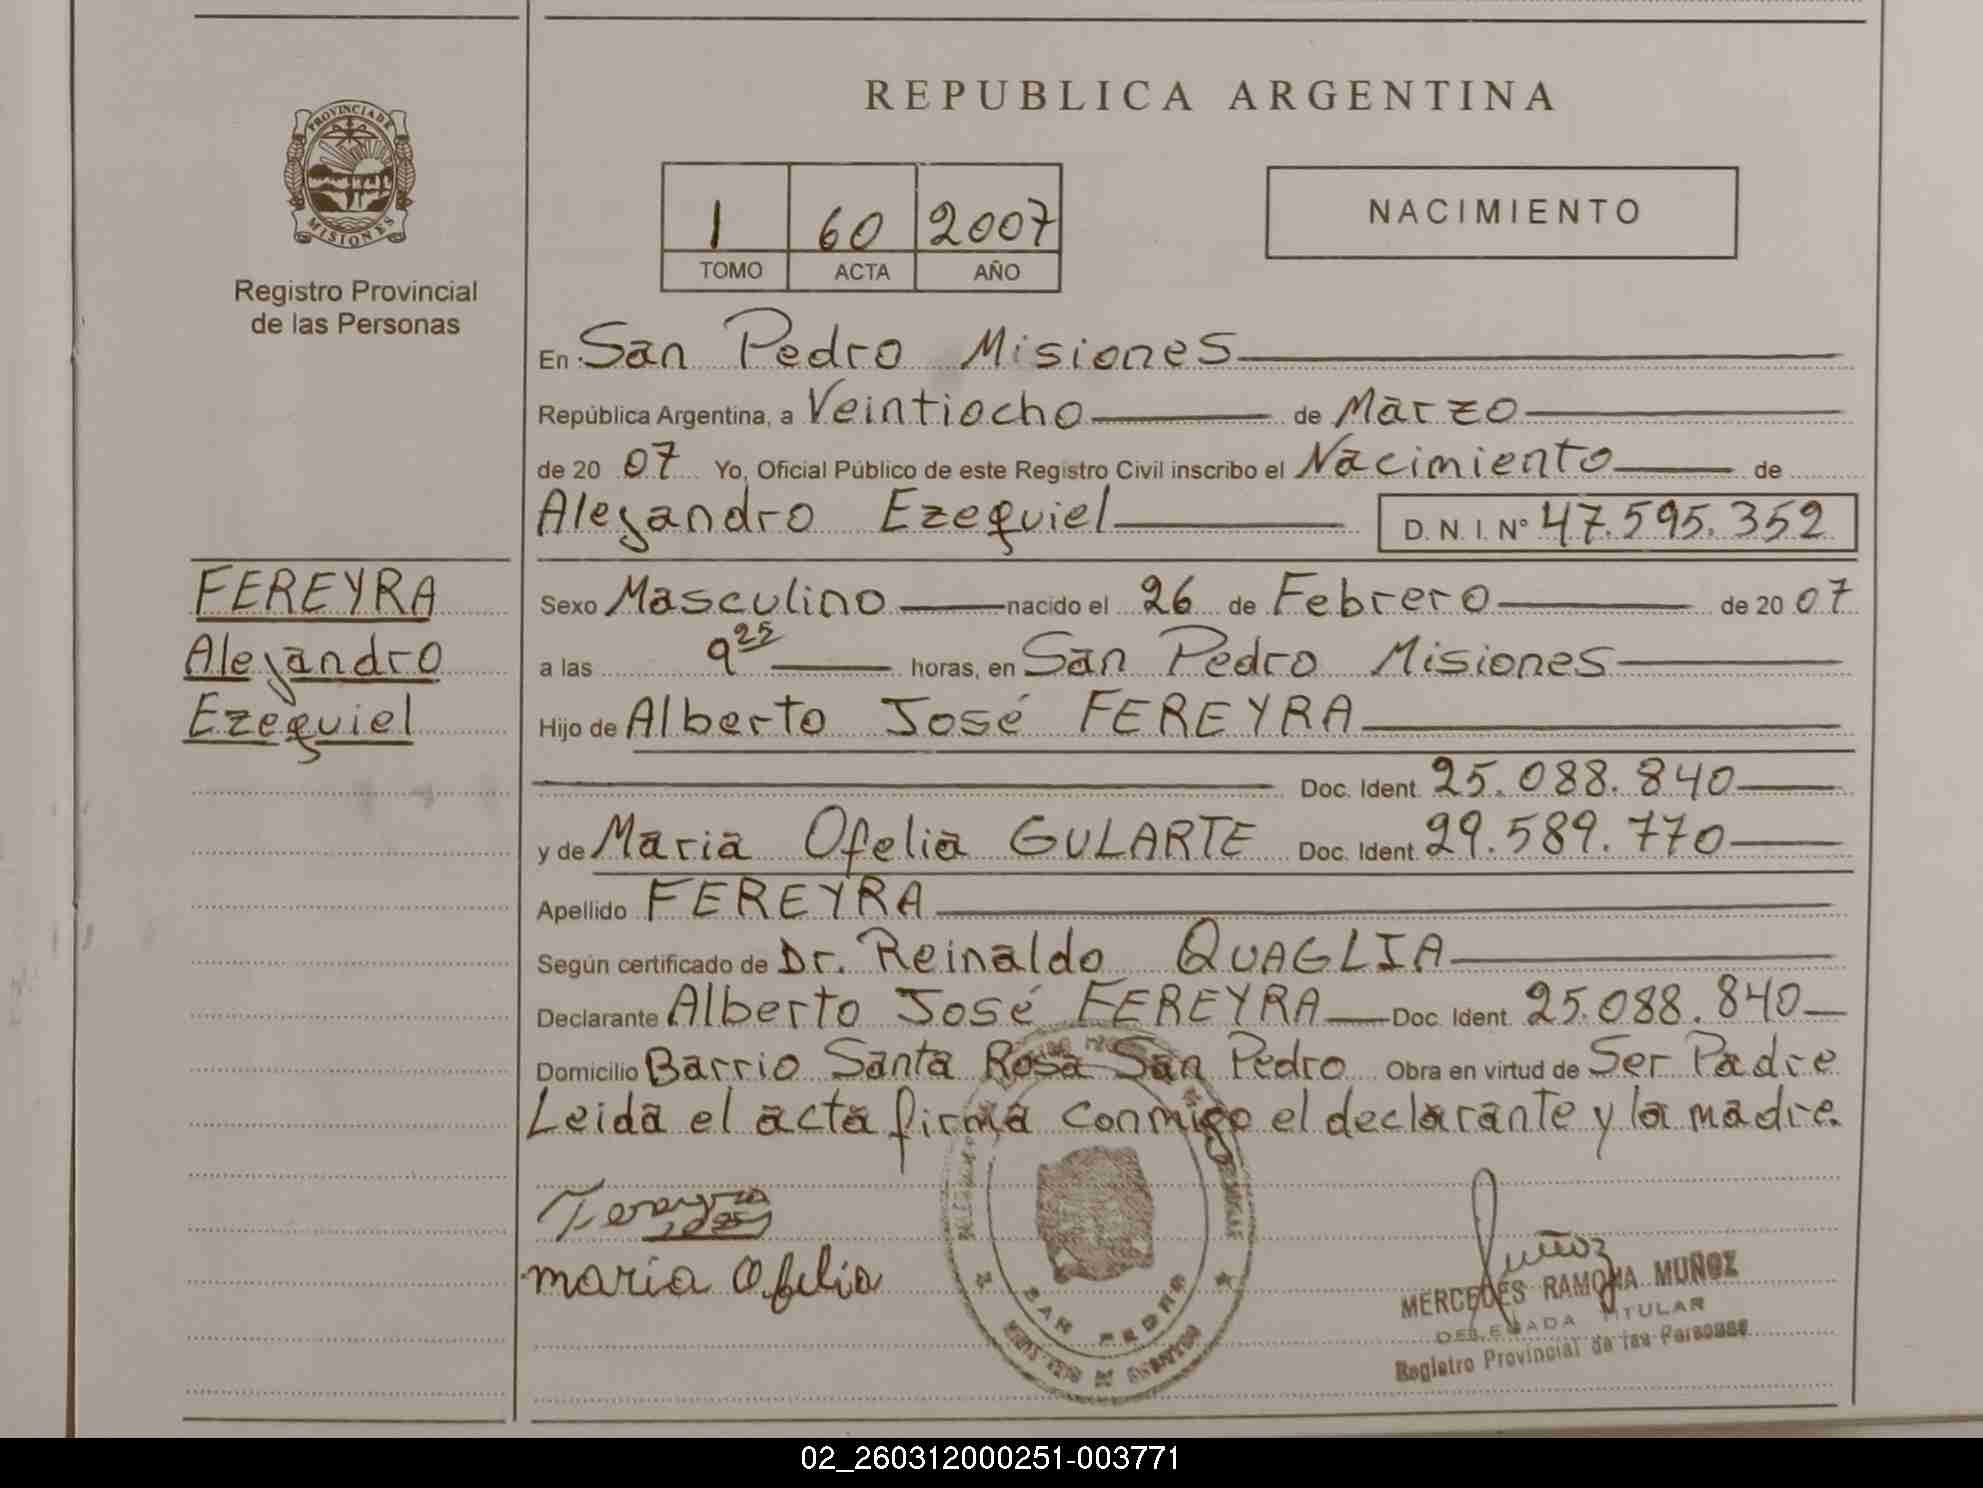 PROVINCIA DE
MISIONES
Registro Provincial
de las Personas
FEREYRA
Alejandro
Ezequiel
REPUBLICA ARGENTINA
1 60 2007
TOMO ACTA AÑO
NACIMIENTO
En San Pedro Misiones
República Argentina, a Veintiocho de Marzo
de 20 07 Yo, Oficial Público de este Registro Civil inscribo el Nacimiento de
Alejandro Ezequiel D. N. I. Nº 47.595.352
Sexo Masculino nacido el 26 de Febrero de 20 07
a las 9 25 horas, en San Pedro Misiones
Hijo de Alberto José FEREYRA
Doc. Ident. 25.088.840
y de Maria Ofelia GULARTE Doc. Ident. 29.589.770
Apellido FEREYRA
Según certificado de Dr. Reinaldo QUAGLIA
Declarante Alberto José FEREYRA Doc. Ident. 25.088.840
Domicilio Barrio Santa Rosa San Pedro Obra en virtud de Ser Padre
Leida el acta firma conmigo el declarante y la madre.
Fereyra
maria Ofelia
SAN PEDRO
Muñoz
MERCEDES RAMONA MUÑOZ
DELEGADA TITULAR
Registro Provincial de las Personas
02_260312000251-003771